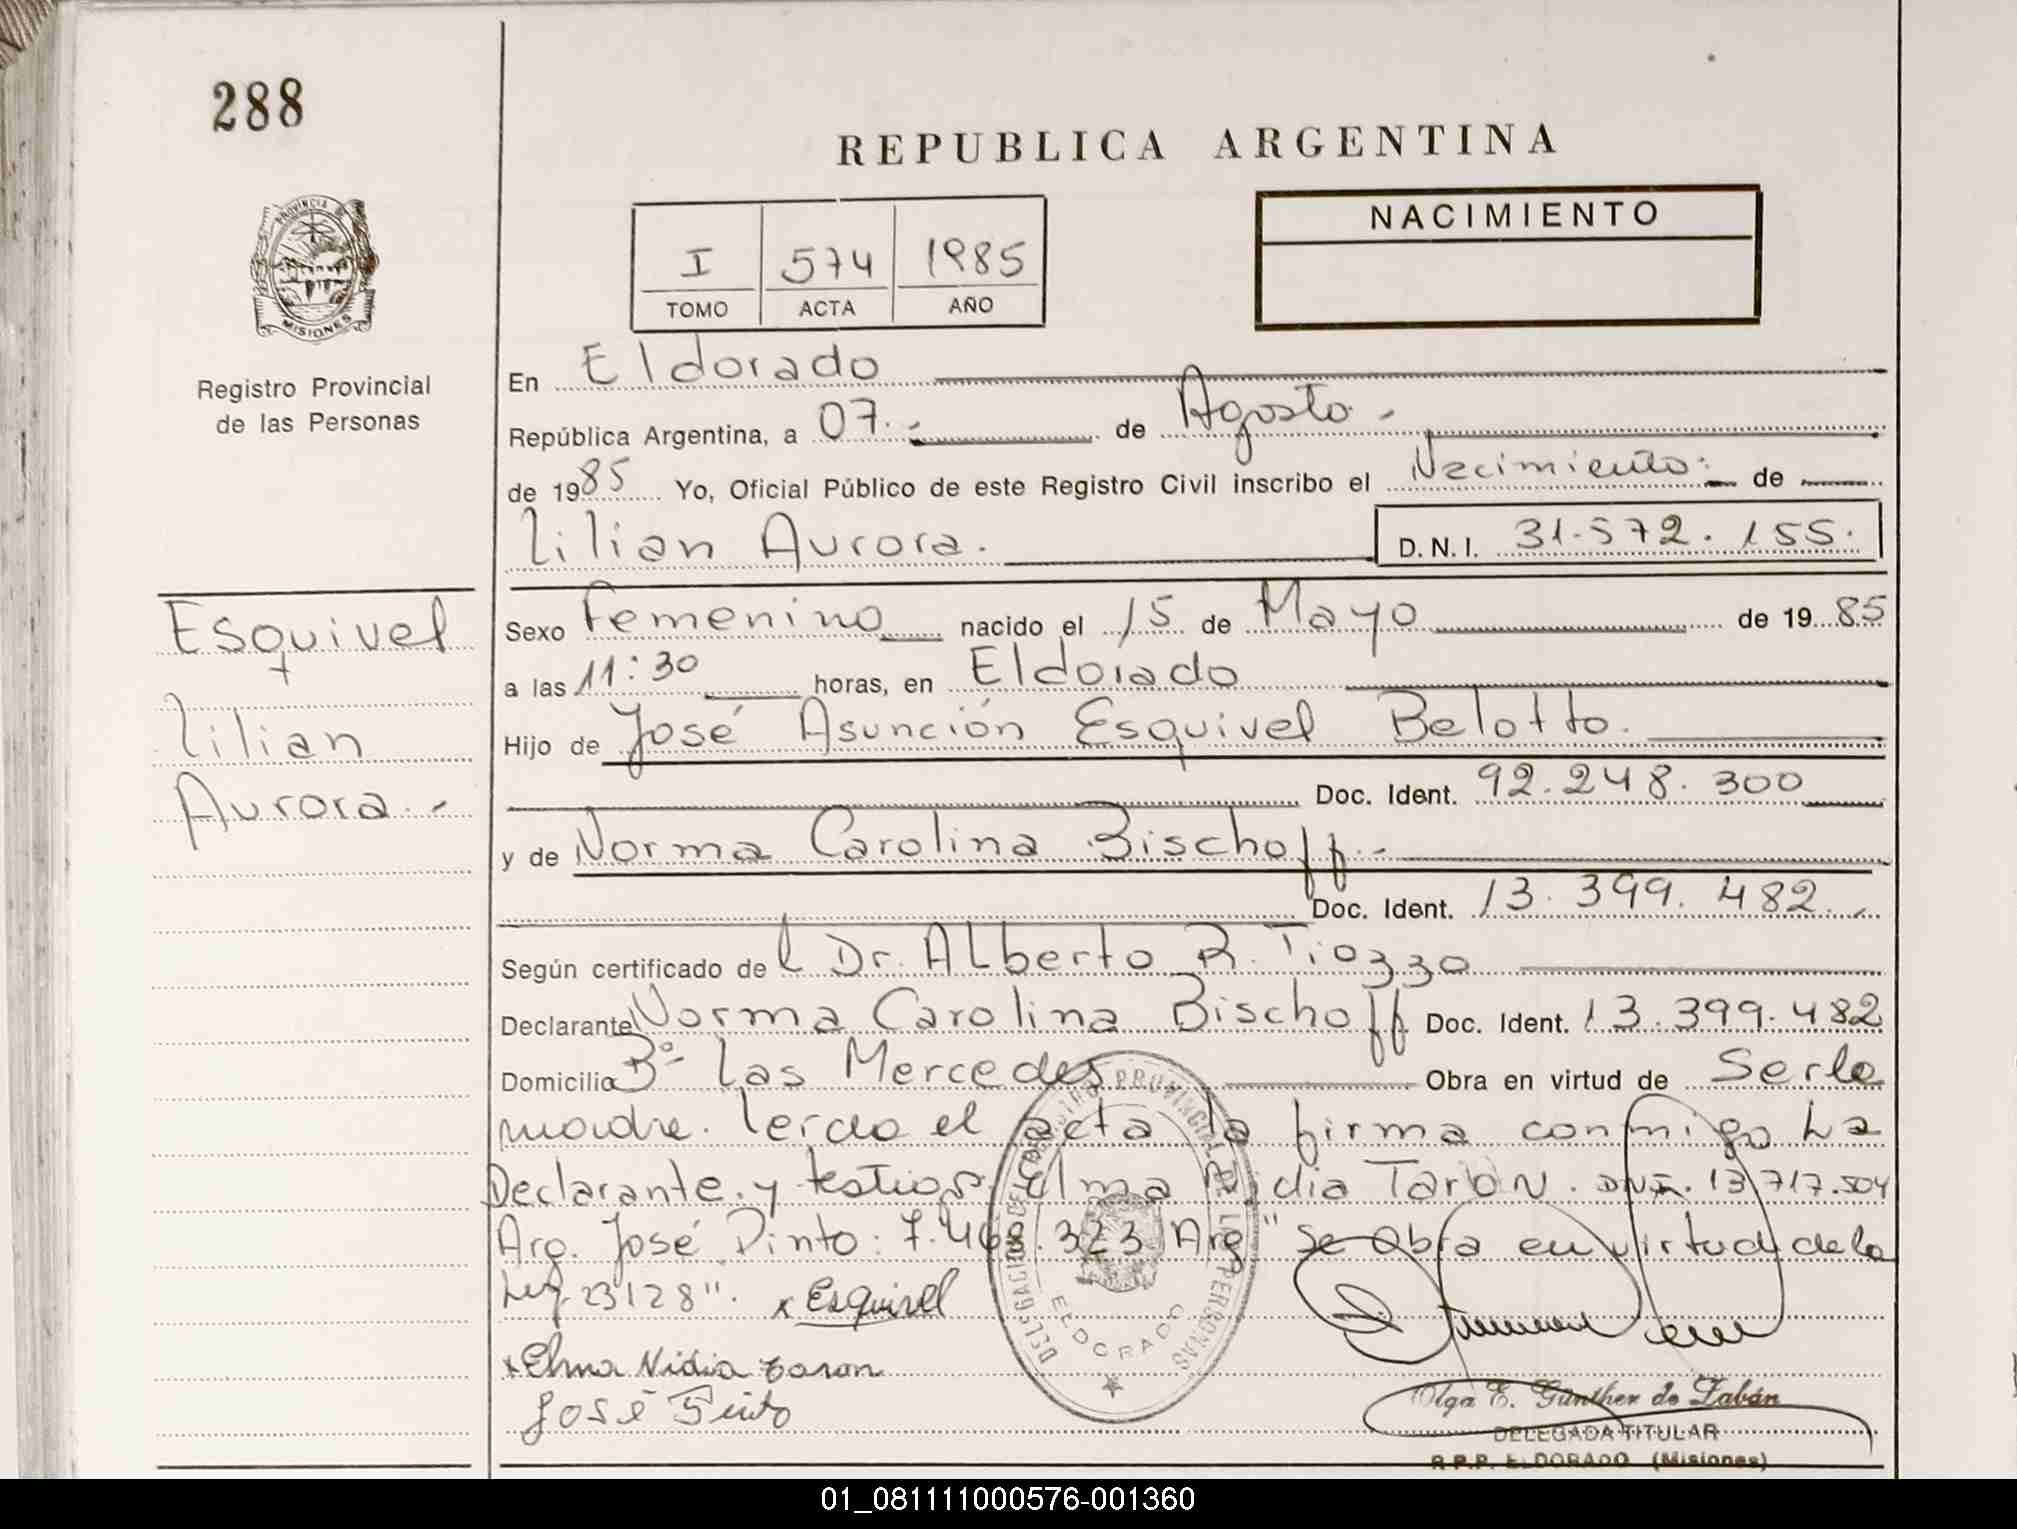 288
REPUBLICA ARGENTINA
PROVINCIA DE
MISIONES
Registro Provincial
de las Personas
I 574 1985
TOMO ACTA AÑO
NACIMIENTO
En Eldorado
República Argentina, a 07.- de Agosto.-
de 1985 Yo, Oficial Público de este Registro Civil inscribo el Nacimiento: de
Lilian Aurora. D.N.I. 31.572.155.
Esquivel
Lilian
Aurora.-
Sexo Femenino nacido el 15 de Mayo de 1985
a las 11:30 horas, en Eldorado
Hijo de José Asunción Esquivel Belotto.
Doc. Ident. 92.248.300
y de Norma Carolina Bischoff.-
Doc. Ident. 13.399.482.-
Según certificado del Dr. Alberto R. Tiozzo
Declarante Norma Carolina Bischoff Doc. Ident. 13.399.482
Domicilio Bº Las Mercedes Obra en virtud de Serla
madre. leido el acta la firma conmigo La
Declarante. y testigos Elma Nidia Taron. DNI. 13.717.504
Arg. José Pinto: 7.468.323 Arg "Se Obra en virtud de la
Ley 23128". x Esquivel
x Elma Nidia Taron
José Pinto
DELEGACION DEL REGISTRO PROVINCIAL DE LAS PERSONAS
ELDORADO
Olga E. Günther de Zabán
DELEGADA TITULAR
R.P.P. ELDORADO (Misiones)
01_081111000576-001360